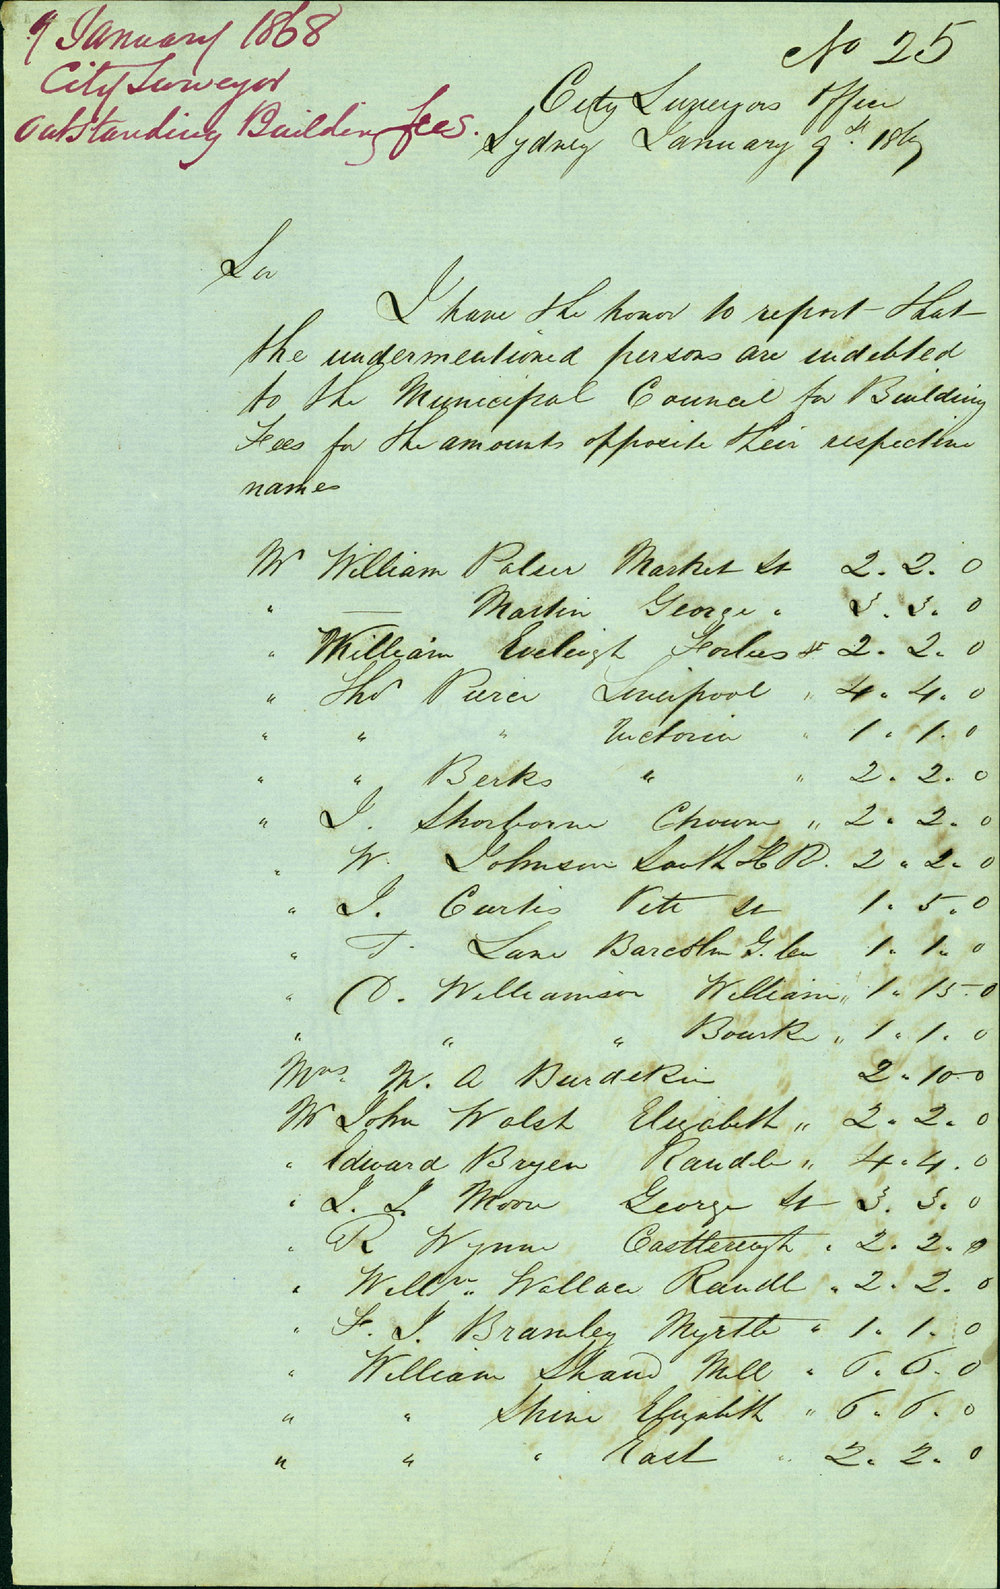 9 January 1868
City Surveyor
Outstanding Building Fees.
No 25
City Surveyors Office
Sydney January 9th 186
Sir
I have the honor to report that
the undermentioned persons are indebted
to the Municipal Council for Building
Fees for the amounts opposite their respective
names
Mr William Palser Market St 2. 2. 0
" — Martin George " 3. 3. 0
" William Eveleigh Forbes St 2. 2. 0
" Thos Pierce Liverpool " 4. 4. 0
" " " Victoria " 1. 1. 0
" " Berks " " 2. 2. 0
" J. Shorborne Chown " 2. 2. 0
" W. Johnson South H R. 2. 2. 0
" J. Curtis Pitt St 1. 5. 0
" T. Lane Barcom Glen 1. 1. 0
" D. Williamson William " 1. 15. 0
" " " Bourke " 1. 1. 0
Mrs. M. A Burdekin 2. 10. 0
Mr John Walsh Elizabeth " 2. 2. 0
" Edward Bryen Randle " 4. 4. 0
" J. J. Moore George St 3. 3. 0
" R Wynne Castlereagh " 2. 2. 0
" Willm. Wallace Randle " 2. 2. 0
" F. J. Bramley Myrtle " 1. 1. 0
" William Shand Mill " 6. 6. 0
" " Shine Elizabeth " 6. 6. 0
" " " East " 2. 2. 0